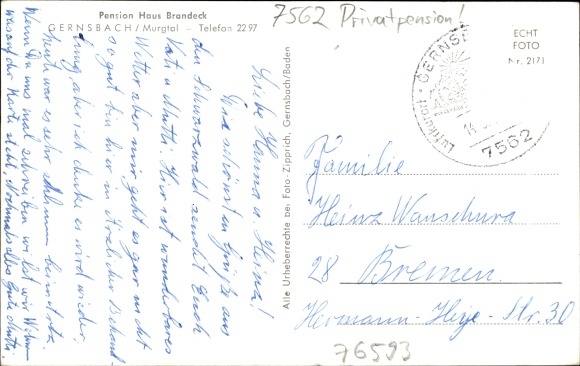 Pension Haus Brandeck
GERNSBACH/Murgtal – Telefon 2297
7562 Privatpension!
ECHT
FOTO
Nr. 2171
Luftkurort GERNSB
14
7562
Alle Urheberrechte bei Foto-Zipprich, Gernsbach/Baden
Liebe Hanna u. Heinz!
Die schönsten Grüße aus
den Schwarzwald sendet Euch
Vati u. Mutti. Hier ist wunderbares
Wetter aber mir geht es gar nicht
so gut bin hier in ärztlicher Behand-
lung, aber ich denke es wird wieder,
heute war es sehr schlimm
Wenn Du uns mal schreiben willst wir wohnen
was auf der Karte steht, Nochmals alles Gute Mutti.
Familie
Heinz Wanschura
28 Bremen.
Hermann-Heye-Str. 30
76593